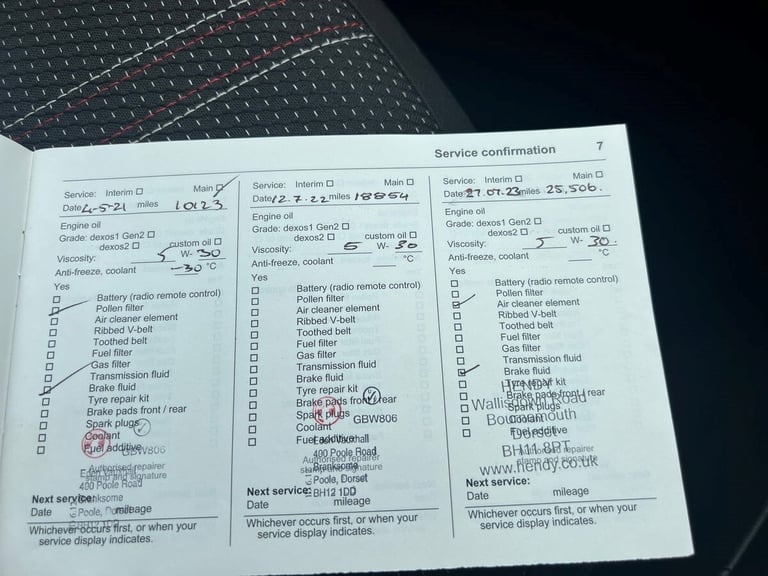 Service confirmation 7
Service: Interim Main
Date 4-5-21 miles 10123
Engine oil
Grade: dexos1 Gen2
dexos2 custom oil
Viscosity: 5 W- 30
Anti-freeze, coolant -30 °C
Yes
Battery (radio remote control)
Pollen filter
Air cleaner element
Ribbed V-belt
Toothed belt
Fuel filter
Gas filter
Transmission fluid
Brake fluid
Tyre repair kit
Brake pads front / rear
Spark plugs
Coolant
Fuel additive GBW806
Authorised repairer
Eden Vauxhall
stamp and signature
400 Poole Road
Next service: Branksome
Date Poole, Dorset mileage
BH12 1DD
Whichever occurs first, or when your
service display indicates.
Service: Interim Main
Date 12.7.22 miles 18854
Engine oil
Grade: dexos1 Gen2
dexos2 custom oil
Viscosity: 5 W- 30
Anti-freeze, coolant °C
Yes
Battery (radio remote control)
Pollen filter
Air cleaner element
Ribbed V-belt
Toothed belt
Fuel filter
Gas filter
Transmission fluid
Brake fluid
Tyre repair kit
Brake pads front / rear
Spark plugs
GBW806
Coolant
Fuel additive
Eden Vauxhall
400 Poole Road
Authorised repairer
Branksome
stamp and signature
Poole, Dorset
Next service: BH12 1DD
Date mileage
Whichever occurs first, or when your
service display indicates.
Service: Interim Main
Date 27.07.23 miles 25,506.
Engine oil
Grade: dexos1 Gen2
dexos2 custom oil
Viscosity: 5 W- 30.
Anti-freeze, coolant °C
Yes
Battery (radio remote control)
Pollen filter
Air cleaner element
Ribbed V-belt
Toothed belt
Fuel filter
Gas filter
Transmission fluid
Brake fluid
HENDY
Tyre repair kit
Brake pads front / rear
Wallisdown Road
Spark plugs
Bournemouth
Coolant
Dorset
Fuel additive
BH11 8PT
Authorised repairer
stamp and signature
www.hendy.co.uk
Next service:
Date mileage
Whichever occurs first, or when your
service display indicates.